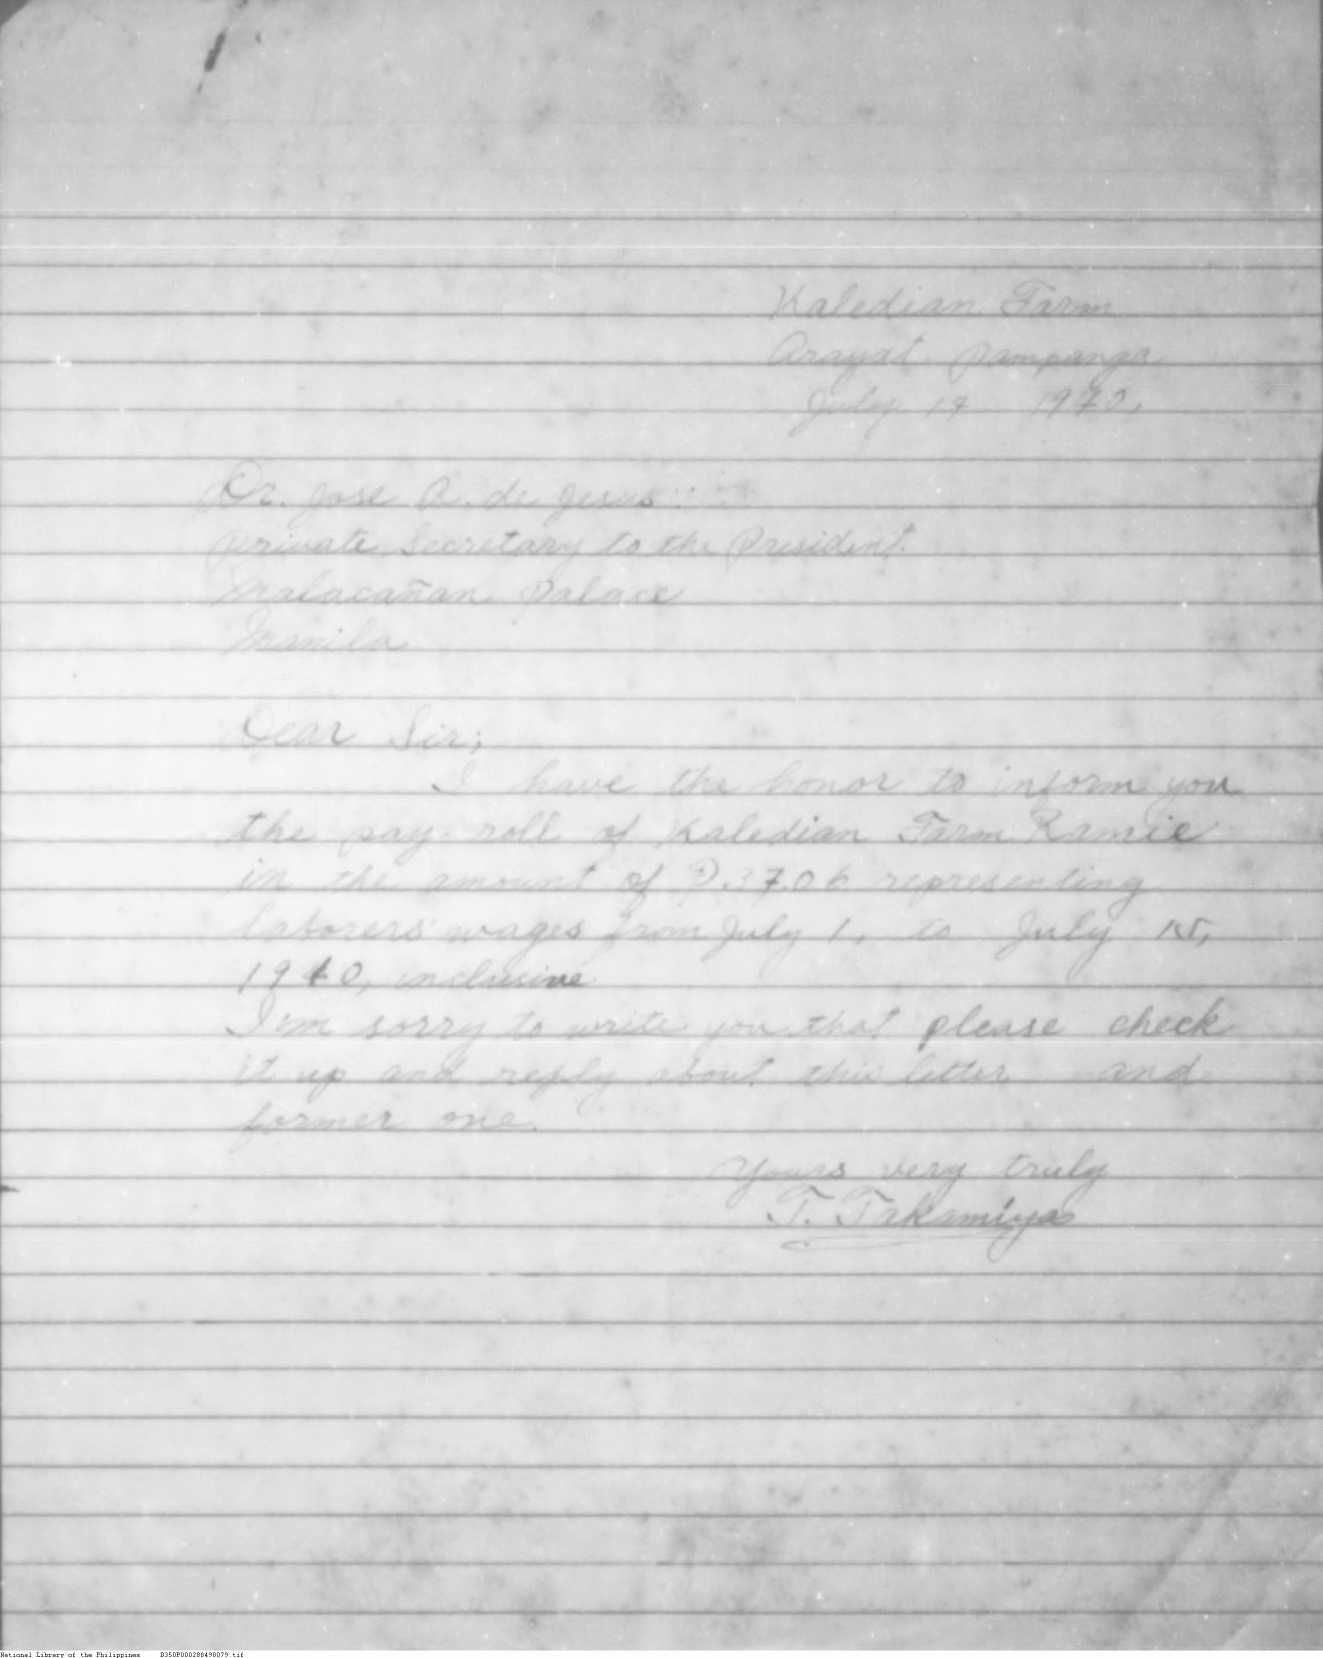 Kaledian Farm
Arayat Pampanga
July 17 1940,
Dr. Jose A. de Jesus
Private Secretary to the President
Malacañan Palace
Manila
Dear Sir;
I have the honor to inform you
the pay roll of Kaledian Farm Ramie
in the amount of ₱.37.06 representing
laborers' wages from July 1, to July 15,
1940, inclusive
I'm sorry to write you that please check
it up and reply about this letter and
former one.
Yours very truly
T. Takamiya
National Library of the Philippines D350P000288498079.tif